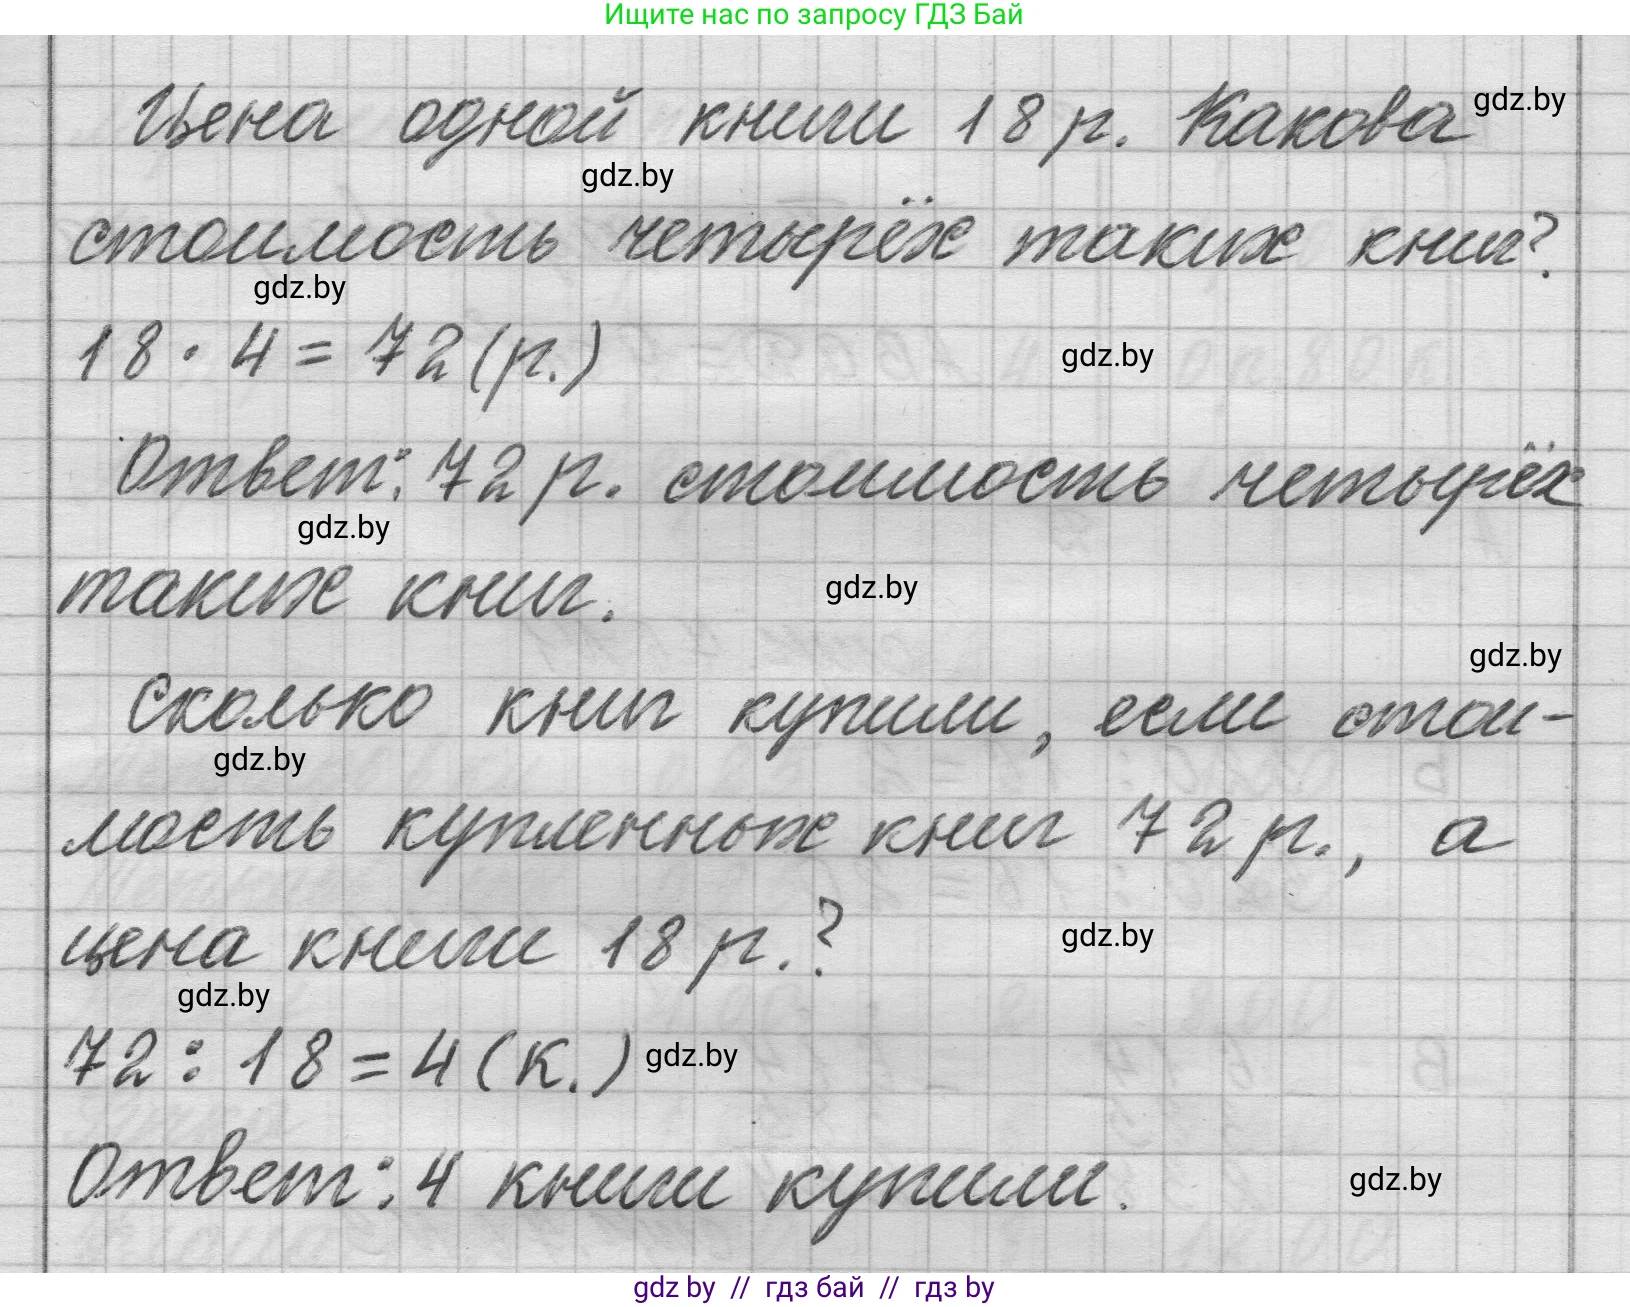 Ищите нас по запросу ГДЗ Бай
Цена одной книги 18 р. Какова gdz.by
gdz.by
стоимость четырёх таких книг?
gdz.by
18 · 4 = 72 (р.) gdz.by
Ответ: 72 р. стоимость четырёх
gdz.by
таких книг. gdz.by
gdz.by
Сколько книг купили, если стои-
gdz.by
мость купленных книг 72 р., а
цена книги 18 р.? gdz.by
gdz.by
72 : 18 = 4 (к.) gdz.by
Ответ: 4 книги купили. gdz.by
gdz by // гдз бай // гдз by